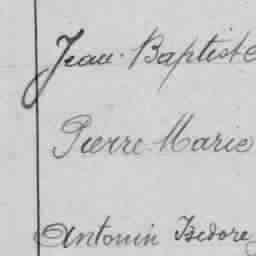 Jean-Baptiste
Pierre Marie
Antonin Isedore